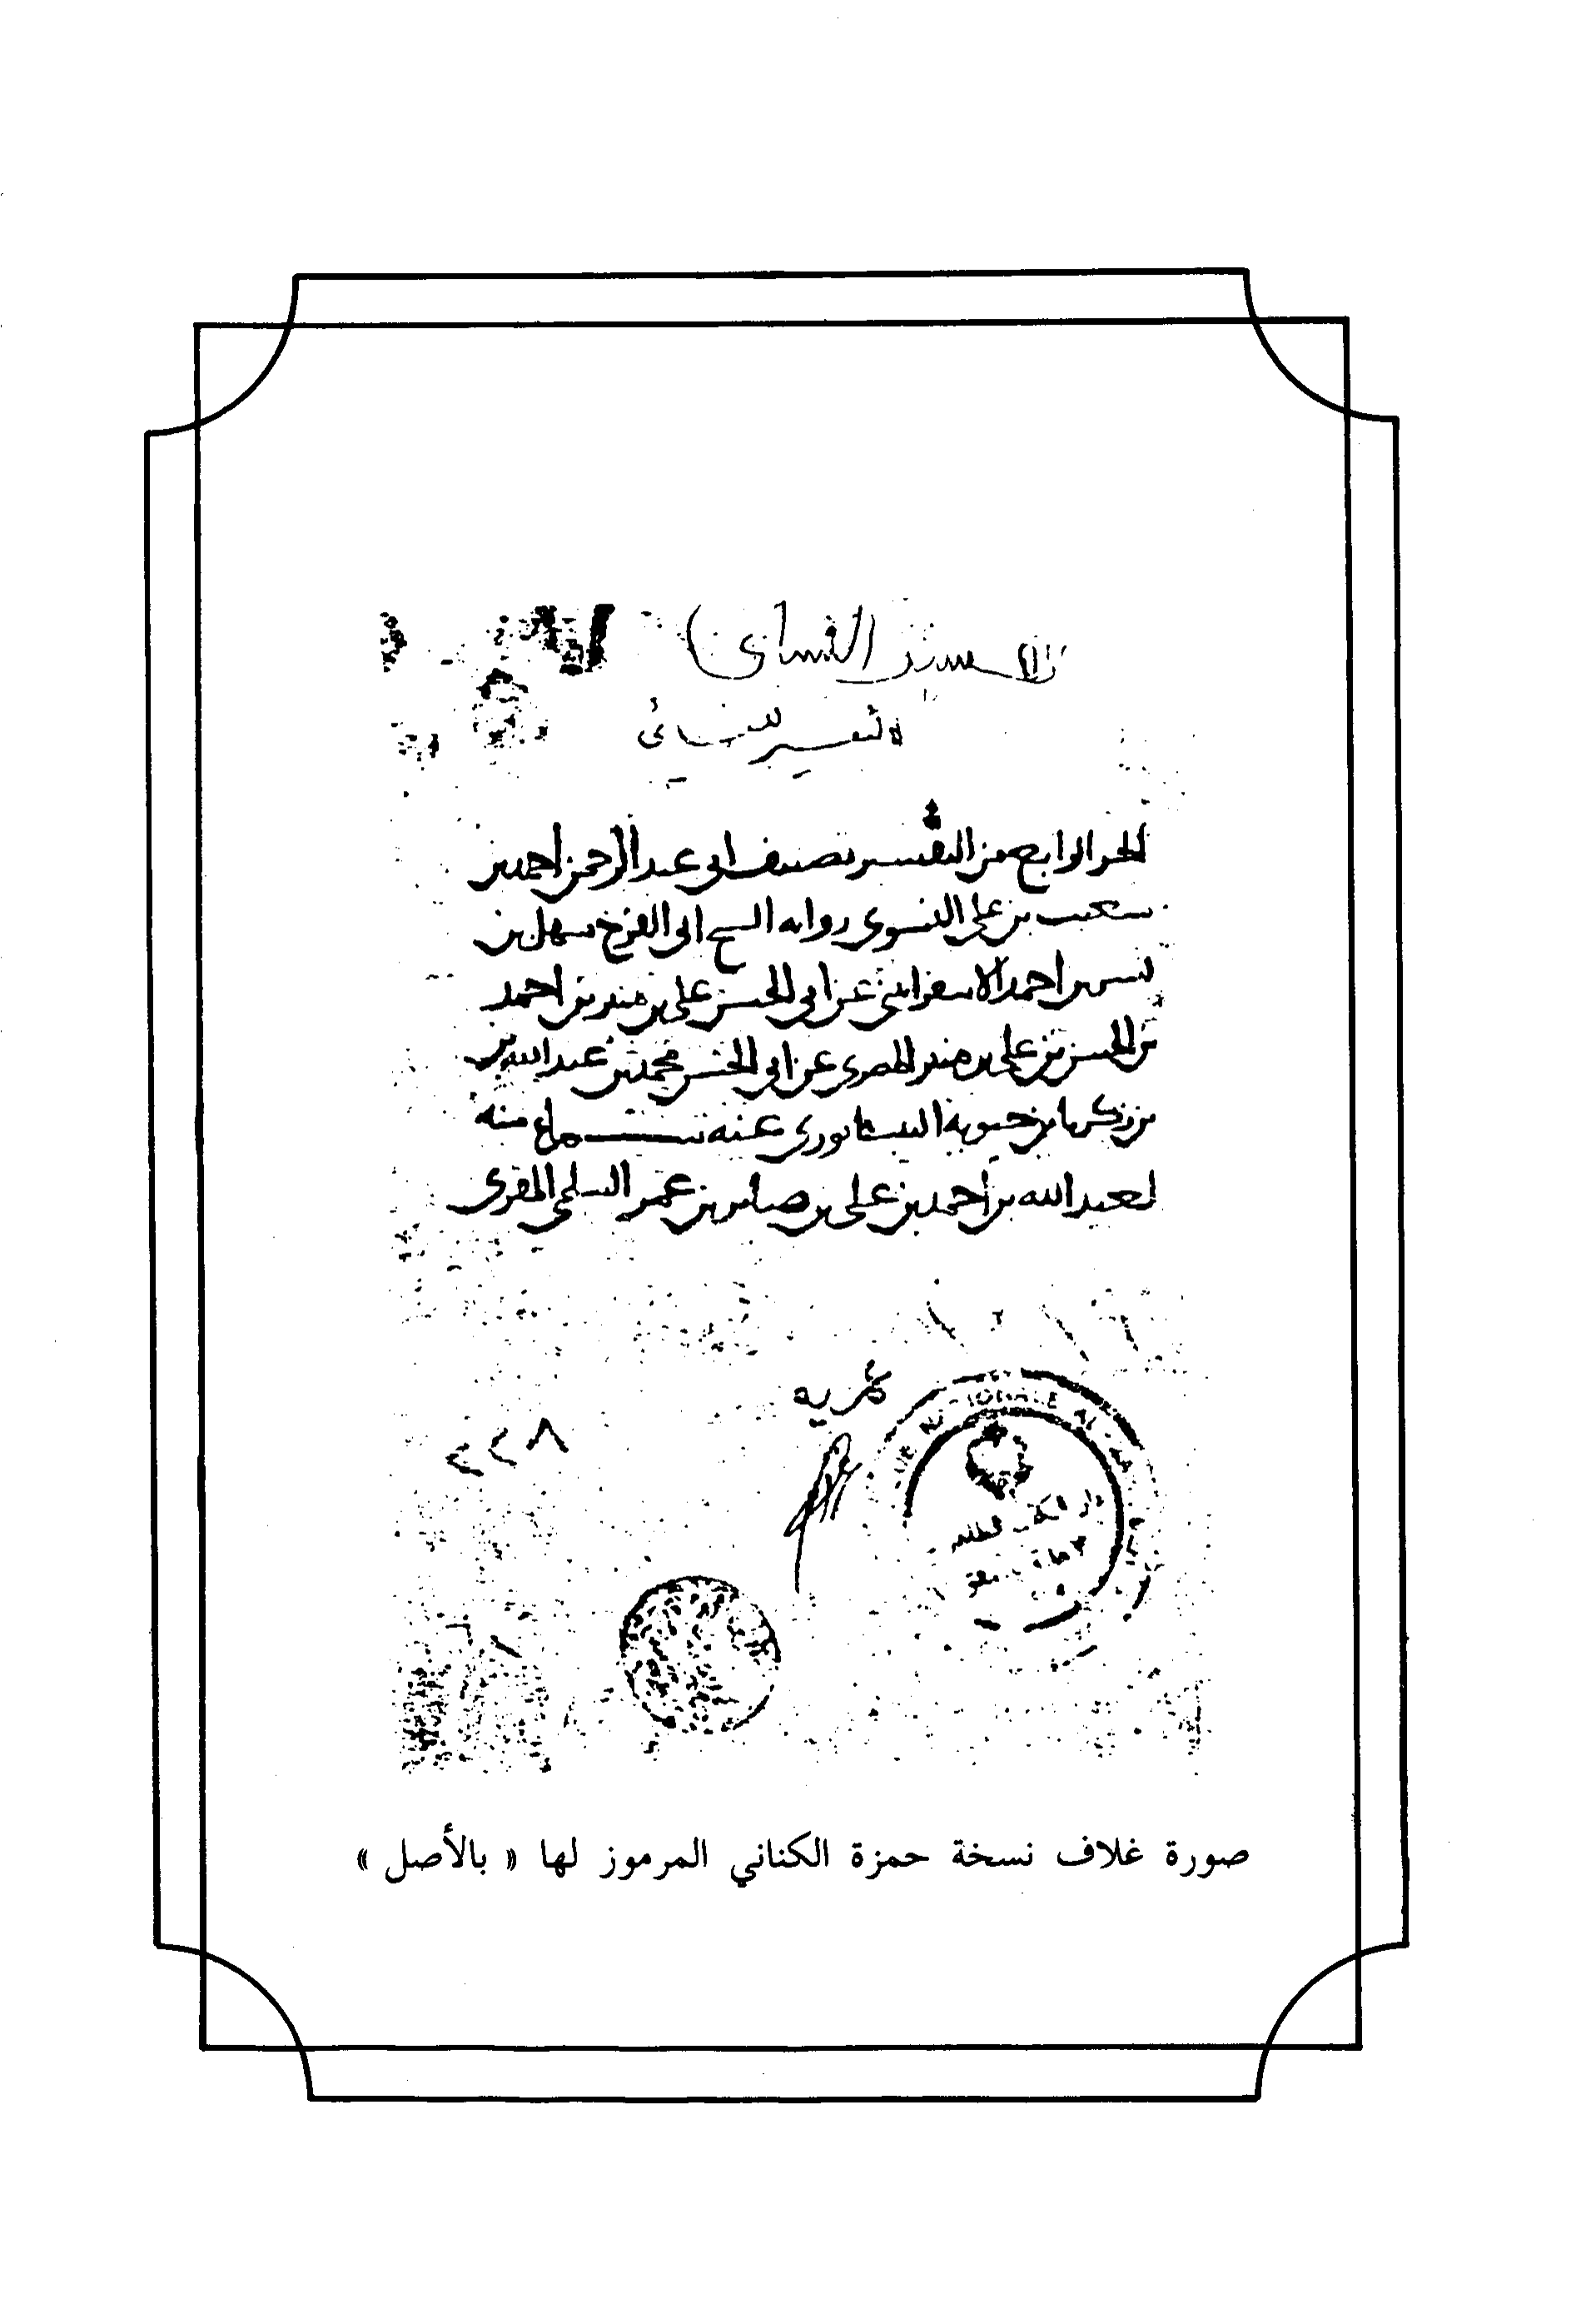 التفسير للنسائي
الجزء الرابع من التفسير تصنيف ابي عبد الرحمن احمد بن
شعيب بن علي النسوي رواية الشيخ ابي الفرج سهل بن
بشر بن احمد الاسفرايني عن ابي الحسن علي بن منير بن احمد
بن الحسن بن علي بن منير المصري عن ابي الحسن محمد بن عبد الله بن
بن زكريا بن حيويه النيسابوري عنه سماع منه
لعبد الله بن احمد بن علي بن صابر بن عمر السلمي المقرى
عمريه
صورة غلاف نسخة حمزة الكناني المرموز لها « بالأصل »